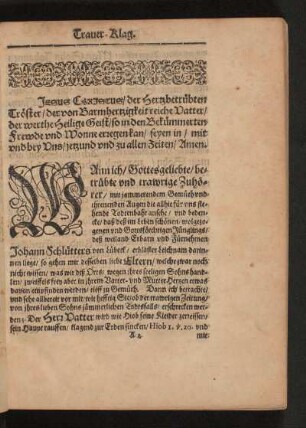 Trauer-Klag.
Jesus Christus / der Hertzbetrübten
Tröster / der von Barmhertzigkeit reiche Vatter /
der werthe Heilige Geist / so in den Bekümmerten
Frewde vnd Wonne erregen kan / seyen in / mit
vnd bey Vns / jetzund vnd zu allen Zeiten / Amen.
WAnn ich / Gottesgeliebte / be-
trübte vnd trawrige Zuhö-
rer / mit jammerendem Gemüth vnd
threnenden Augen die alhie für vns ste-
hende Todtenbahr ansehe / vnd beden-
cke / daß deß im Leben schönen / wolgezo-
genen vnd Gottsförchtigen Jünglings /
deß weiland Erbarn vnd Fürnehmen
Johann Schlüters von Lübeck / erblaßter Leichnam darin-
nen lige / so gehen mir desselben liebe Eltern / welche zwar noch
nicht wissen / was mit deß Orts wegen jhres seeligen Sohns hand-
len / zweiffels frey aber in jhrem Vatter- vnd Mutter Hertzen etwas
davon empfinden werden / tieff zu Gemüth. Dann ich betrachte /
vnd sehe allbereit vor mir wie hefftig Sie ob der trawrigen Zeitung /
von jhres lieben Sohns jämmerlichen Todtsfall / erschrecken wer-
den: Der Herr Vatter wird wie Hiob seine Kleider zerreissen /
sein Haupt rauffen / klagend zur Erden sincken / Hiob 1. v. 20. vnd
A 2 mit